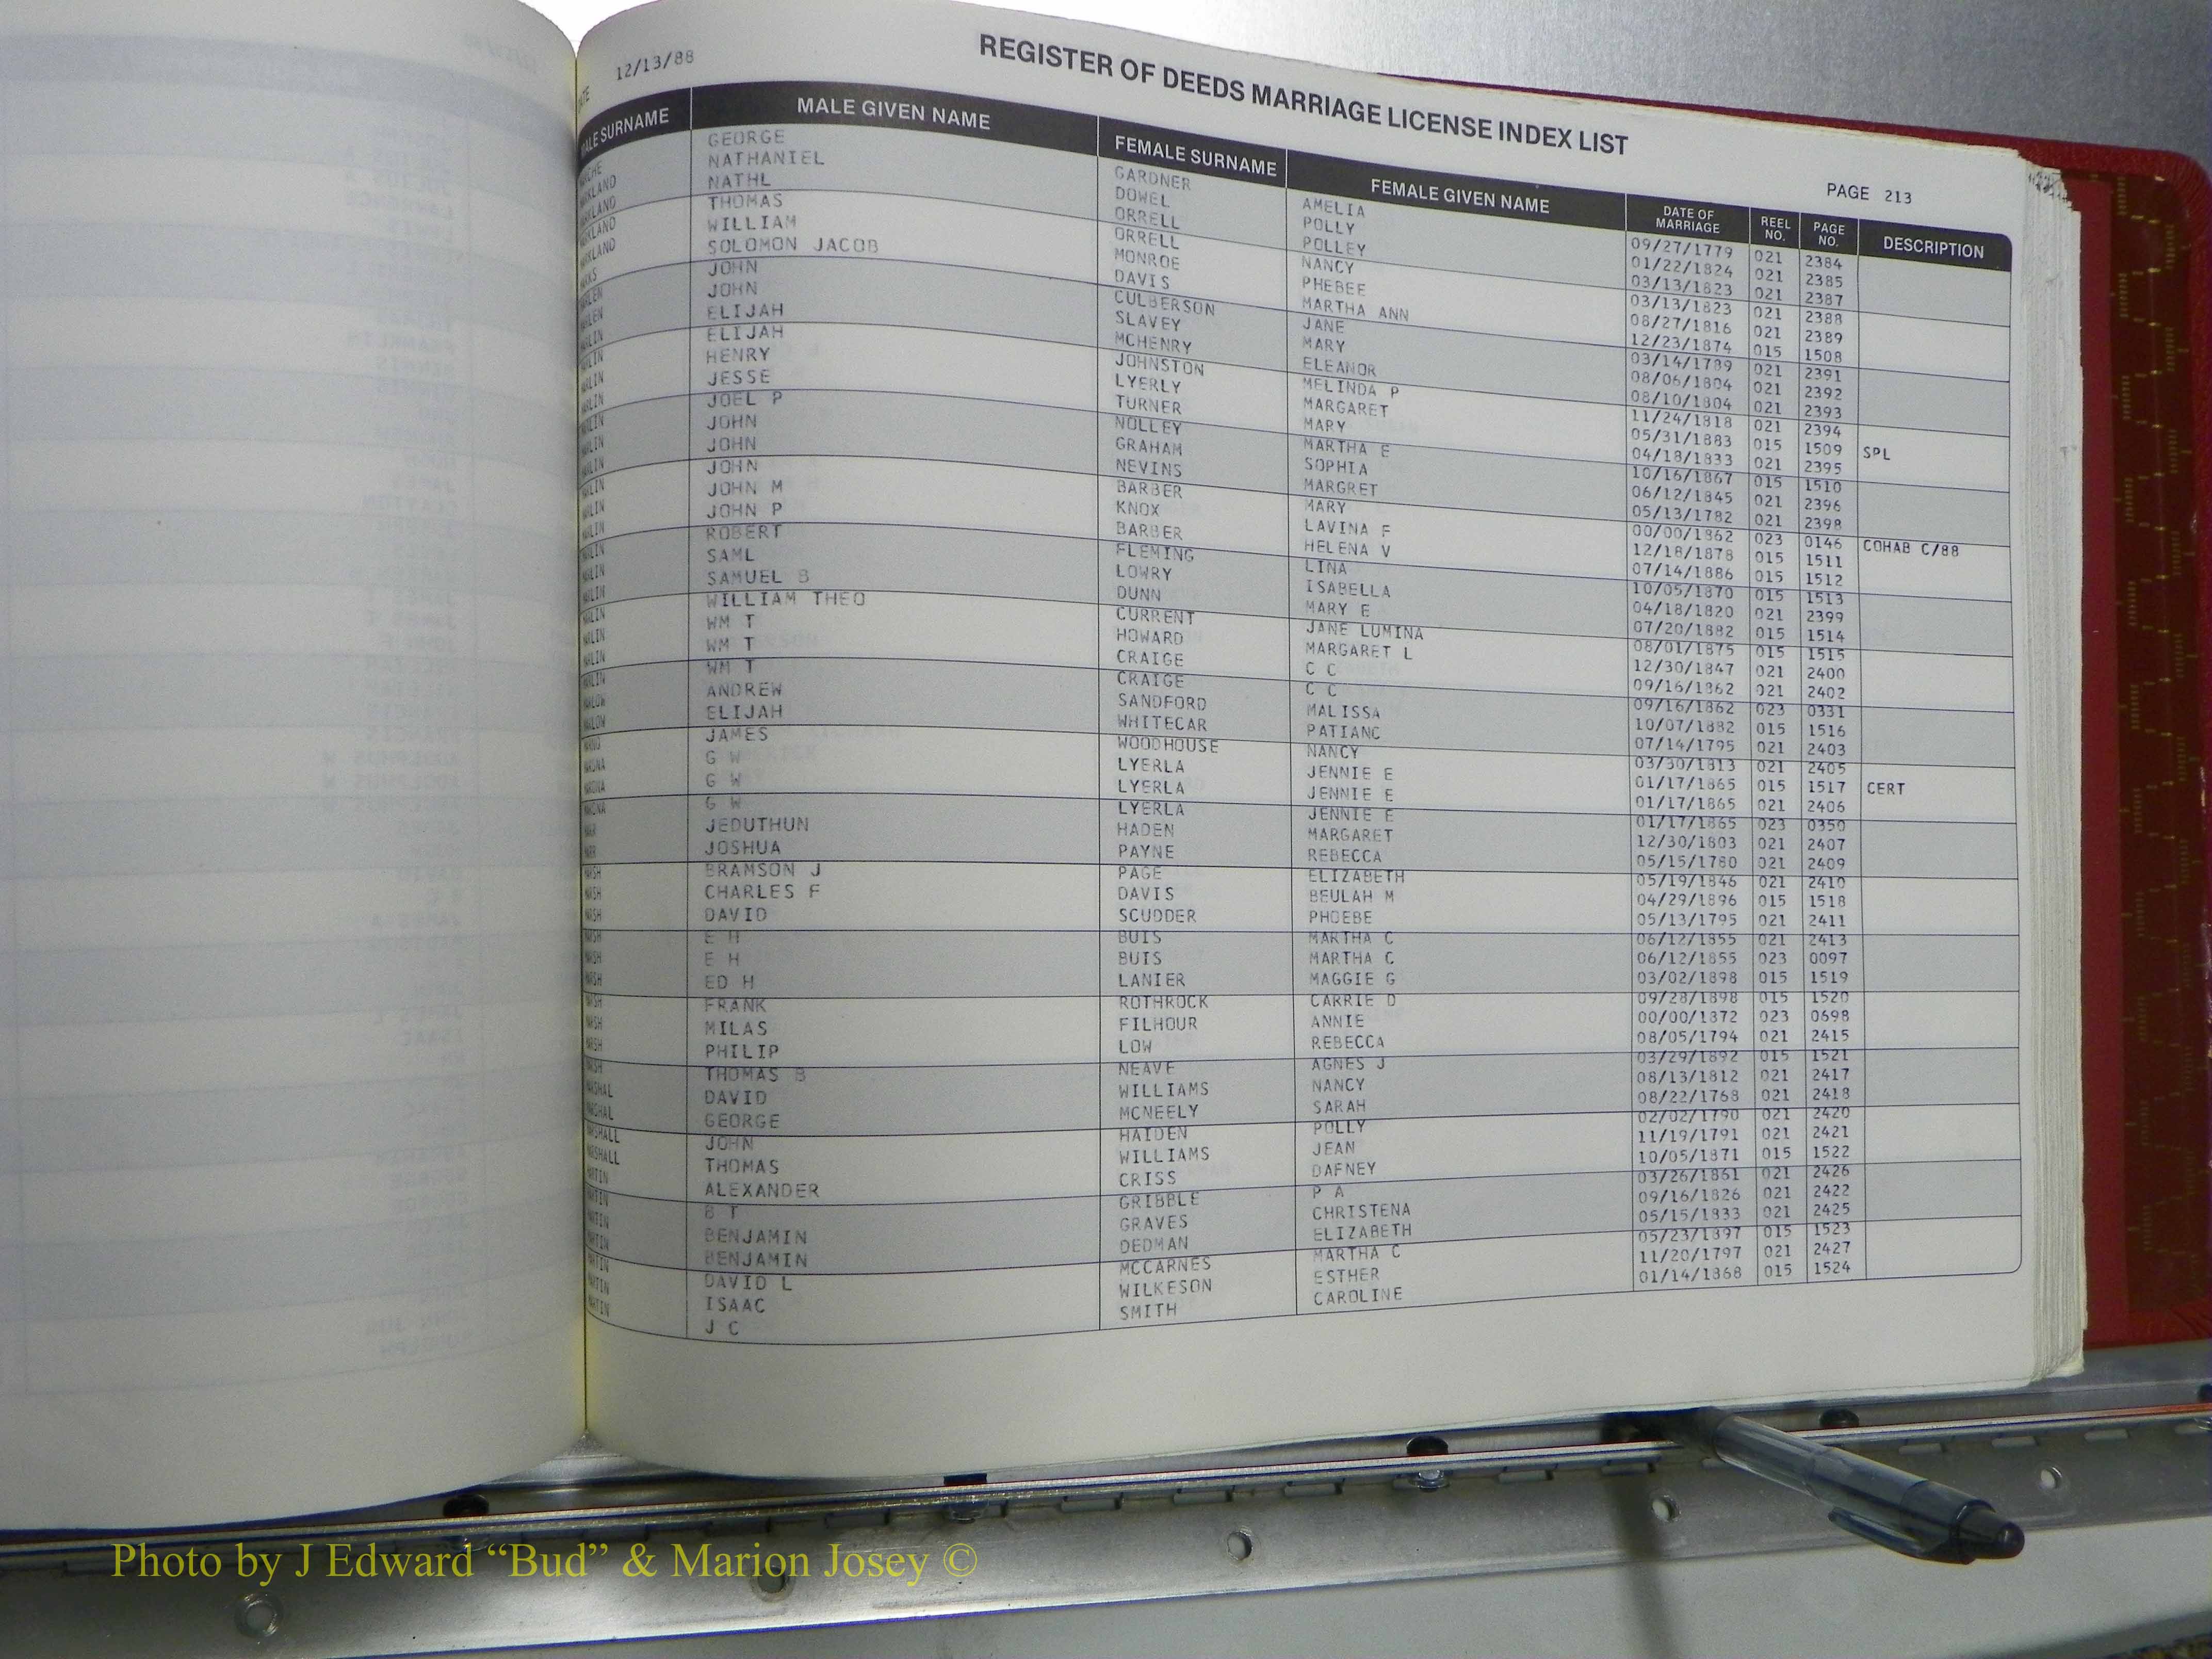 12/13/88
REGISTER OF DEEDS MARRIAGE LICENSE INDEX LIST
PAGE 213
MALE SURNAME MALE GIVEN NAME FEMALE SURNAME FEMALE GIVEN NAME DATE OF MARRIAGE REEL NO. PAGE NO. DESCRIPTION
GEORGE GARDNER AMELIA 09/27/1779 021 2384
NATHANIEL DOWEL POLLY 01/22/1824 021 2385
NATHL ORRELL POLLEY 03/13/1823 021 2387
THOMAS ORRELL NANCY 03/13/1823 021 2388
WILLIAM MONROE PHEBEE 08/27/1816 021 2389
SOLOMON JACOB DAVIS MARTHA ANN 12/23/1874 015 1508
JOHN CULBERSON JANE 03/14/1789 021 2391
JOHN SLAVEY MARY 08/06/1804 021 2392
ELIJAH MCHENRY ELEANOR 08/10/1804 021 2393
ELIJAH JOHNSTON MELINDA P 11/24/1818 021 2394
HENRY LYERLY MARGARET 05/31/1883 015 1509 SPL
JESSE TURNER MARY 04/18/1833 021 2395
JOEL P NOLLEY MARTHA E 10/16/1867 015 1510
JOHN GRAHAM SOPHIA 06/12/1845 021 2396
JOHN NEVINS MARGRET 05/13/1782 021 2398
JOHN BARBER MARY 00/00/1862 023 0146 COHAB C/88
JOHN M KNOX LAVINA F 12/18/1878 015 1511
JOHN P BARBER HELENA V 07/14/1886 015 1512
ROBERT FLEMING LINA 10/05/1870 015 1513
SAML LOWRY ISABELLA 04/18/1820 021 2399
SAMUEL B DUNN MARY E 07/20/1882 015 1514
WILLIAM THEO CURRENT JANE LUMINA 08/01/1875 015 1515
WM T HOWARD MARGARET L 12/30/1847 021 2400
WM T CRAIGE C C 09/16/1862 021 2402
WM T CRAIGE C C 09/16/1862 023 0331
ANDREW SANDFORD MALISSA 10/07/1882 015 1516
ELIJAH WHITECAR PATIANC 07/14/1795 021 2403
JAMES WOODHOUSE NANCY 03/30/1813 021 2405
G W LYERLA JENNIE E 01/17/1865 015 1517 CERT
G W LYERLA JENNIE E 01/17/1865 021 2406
G W LYERLA JENNIE E 01/17/1865 023 0350
JEDUTHUN HADEN MARGARET 12/30/1803 021 2407
JOSHUA PAYNE REBECCA 05/15/1780 021 2409
BRAMSON J PAGE ELIZABETH 05/19/1846 021 2410
CHARLES F DAVIS BEULAH M 04/29/1896 015 1518
DAVID SCUDDER PHOEBE 05/13/1795 021 2411
E H BUIS MARTHA C 06/12/1855 021 2413
E H BUIS MARTHA C 06/12/1855 023 0097
ED H LANIER MAGGIE G 03/02/1898 015 1519
FRANK ROTHROCK CARRIE D 09/28/1898 015 1520
MILAS FILHOUR ANNIE 00/00/1872 023 0698
PHILIP LOW REBECCA 08/05/1794 021 2415
THOMAS B NEAVE AGNES J 03/29/1892 015 1521
DAVID WILLIAMS NANCY 08/13/1812 021 2417
GEORGE MCNEELY SARAH 08/22/1768 021 2418
JOHN HAIDEN POLLY 02/02/1790 021 2420
THOMAS WILLIAMS JEAN 11/19/1791 021 2421
ALEXANDER CRISS DAFNEY 10/05/1871 015 1522
B T GRIBBLE P A 03/26/1861 021 2426
BENJAMIN GRAVES CHRISTENA 09/16/1826 021 2422
BENJAMIN DEDMAN ELIZABETH 05/15/1833 021 2425
DAVID L MCCARNES MARTHA C 05/23/1897 015 1523
ISAAC WILKESON ESTHER 11/20/1797 021 2427
J C SMITH CAROLINE 01/14/1868 015 1524
Photo by J Edward “Bud” & Marion Josey ©